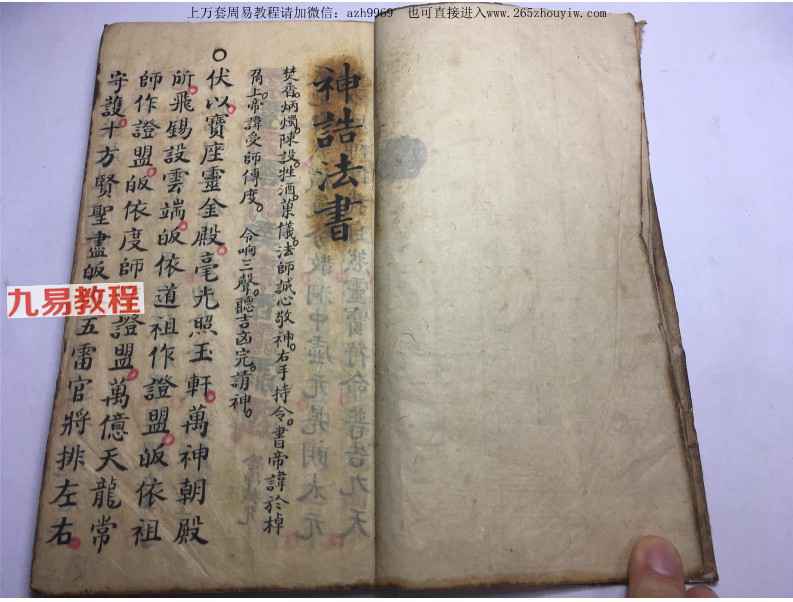 上万套周易教程请加微信：azh9969 也可直接进入www.265zhouyiw.com
神誥法書
焚香炳燭陳設牲酒菓儀法師誠心敬神右手持令書帝諱於棹
角上帝諱受師傳度 令响三聲聽吉凶完請神
伏以寶座靈金殿毫光照玉軒萬神朝殿
所飛錫設雲端皈依道祖作證盟皈依祖
師作證盟皈依度師 證盟萬億天龍常
守護十方賢聖盡皈 五雷官將排左右
九易教程